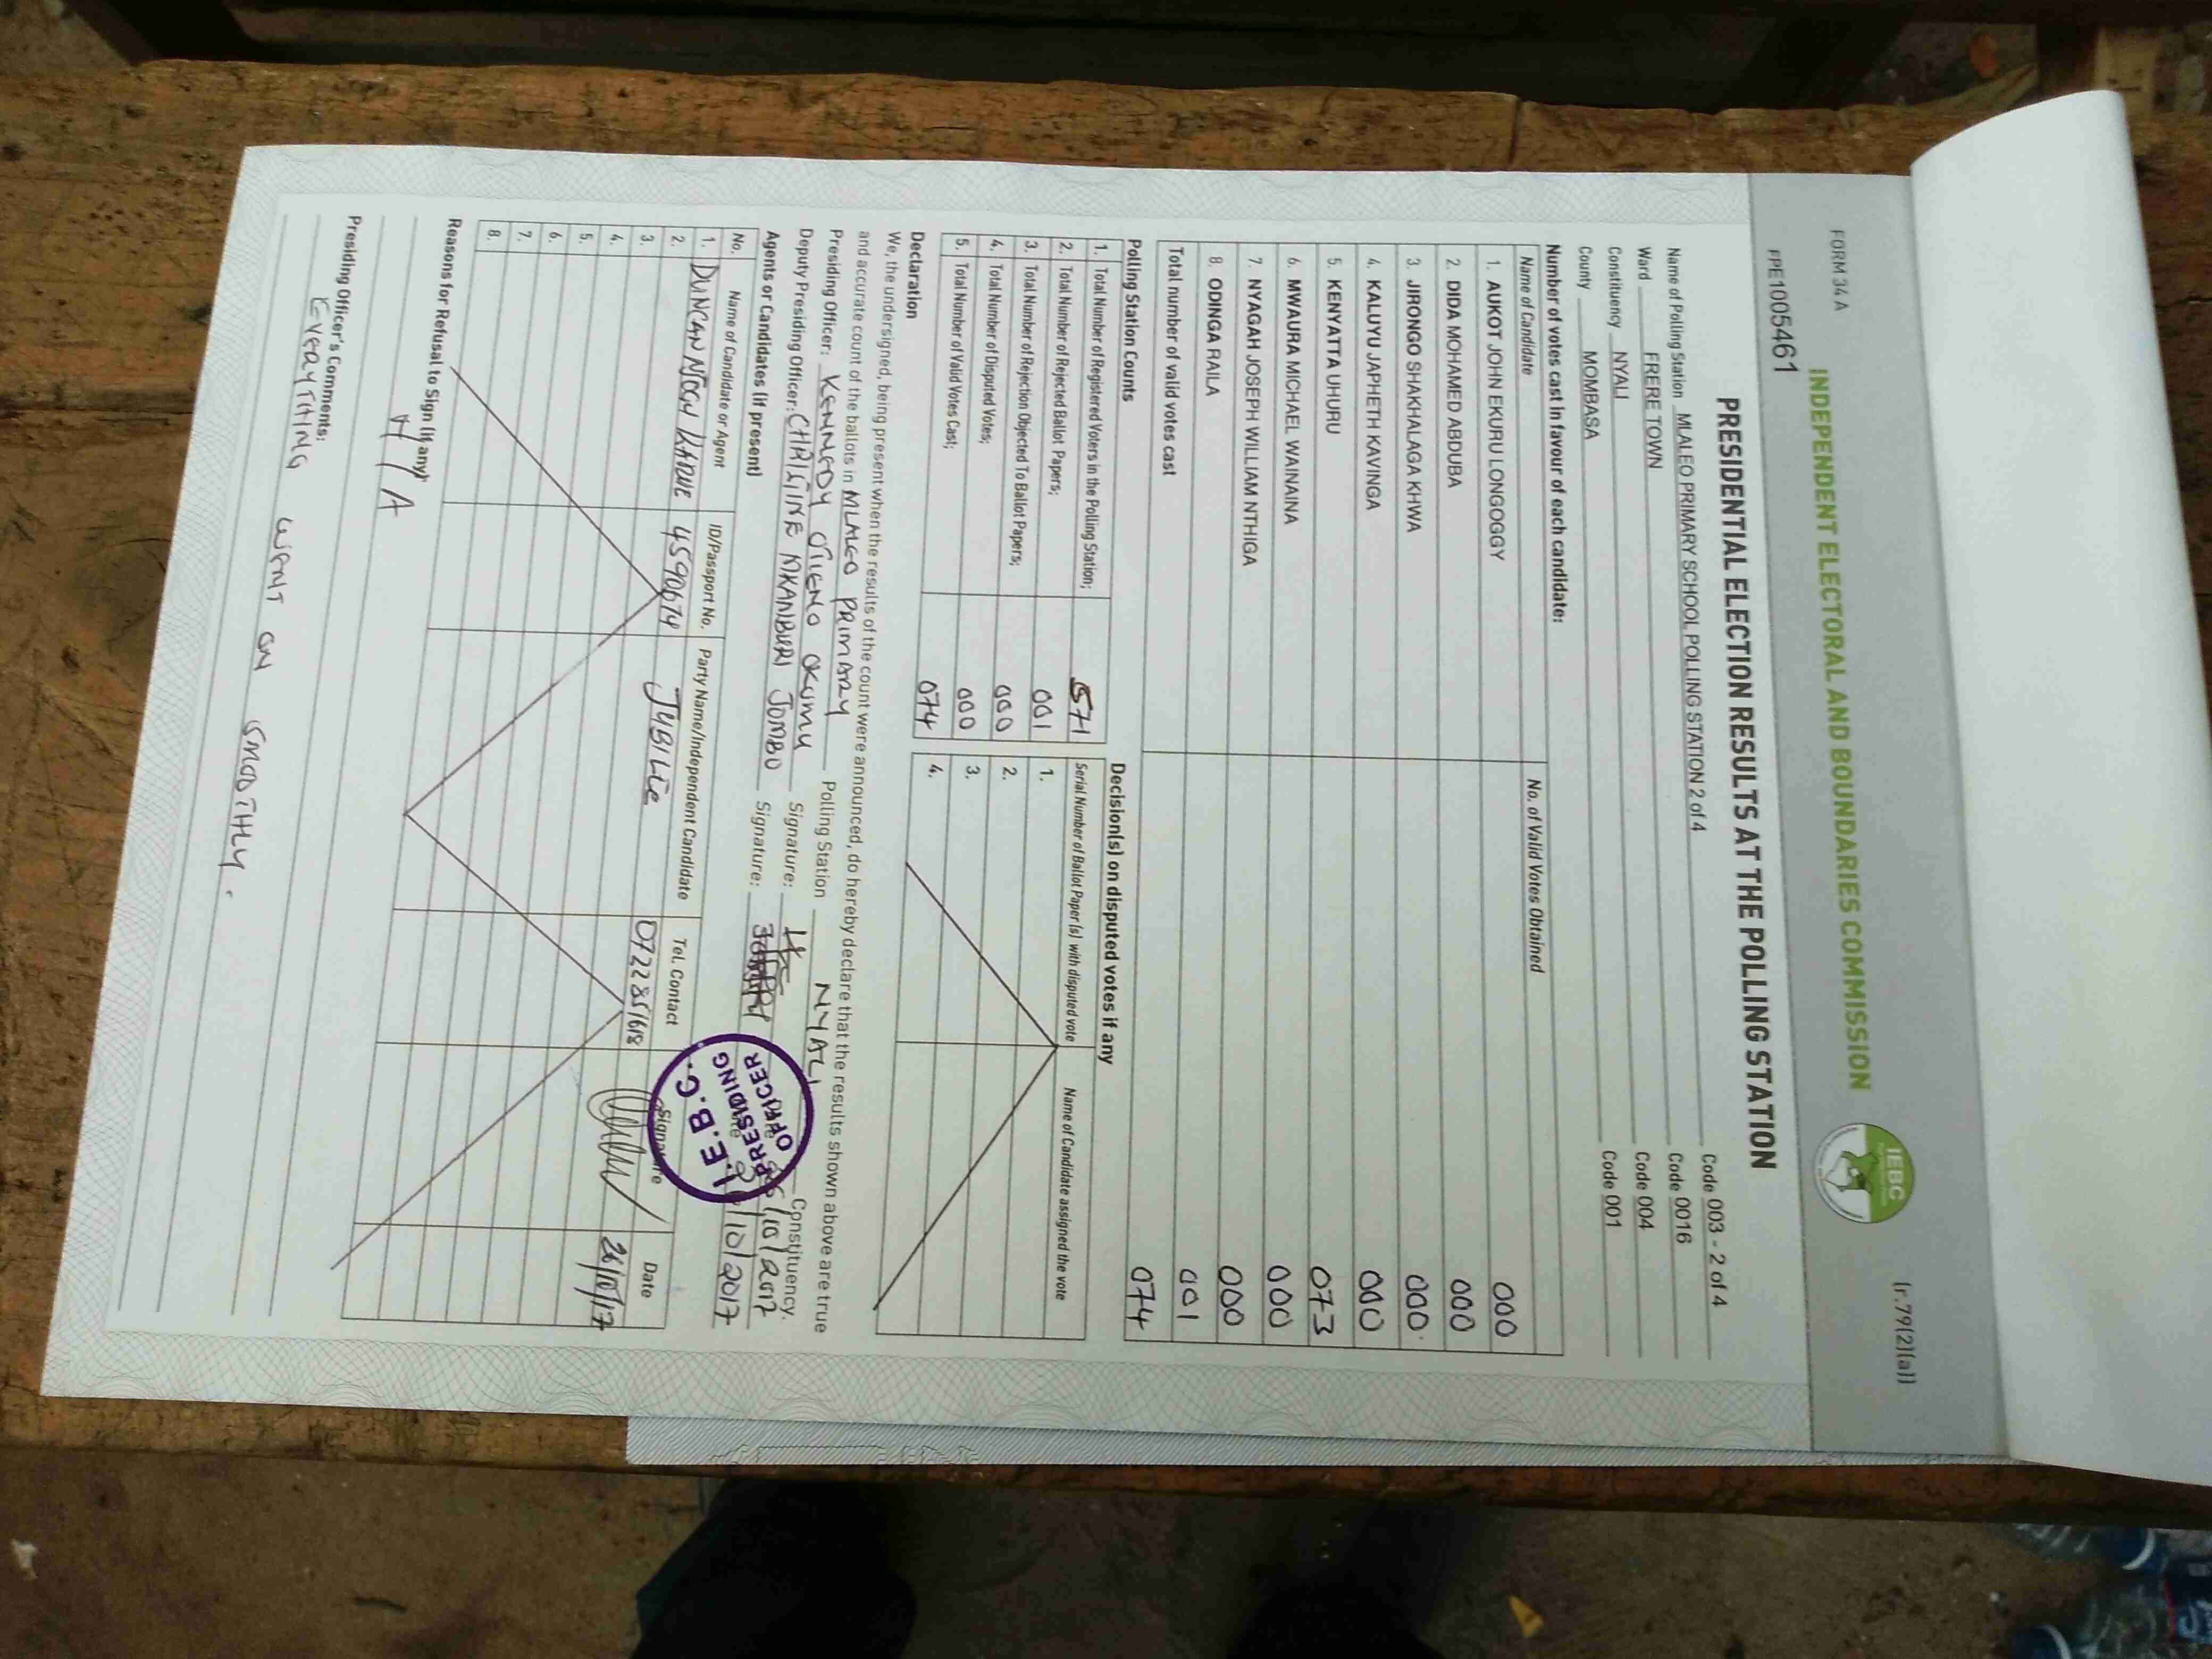 FORM 34 A
(r.79(2)(a))
INDEPENDENT ELECTORAL AND BOUNDARIES COMMISSION
IEBC
FPE1005461
PRESIDENTIAL ELECTION RESULTS AT THE POLLING STATION
Name of Polling Station MLALEO PRIMARY SCHOOL POLLING STATION 2 of 4 Code 003 - 2 of 4
Ward FRERE TOWN Code 0016
Constituency NYALI Code 004
County MOMBASA Code 001
Number of votes cast in favour of each candidate:
Name of Candidate No. of Valid Votes Obtained
1. AUKOT JOHN EKURU LONGOGGY 000
2. DIDA MOHAMED ABDUBA 000
3. JIRONGO SHAKHALAGA KHWA 000
4. KALUYU JAPHETH KAVINGA 000
5. KENYATTA UHURU 073
6. MWAURA MICHAEL WAINAINA 000
7. NYAGAH JOSEPH WILLIAM NTHIGA 000
8. ODINGA RAILA 001
Total number of valid votes cast 074
Polling Station Counts
1. Total Number of Registered Voters in the Polling Station; 571
2. Total Number of Rejected Ballot Papers; 001
3. Total Number of Rejection Objected To Ballot Papers; 000
4. Total Number of Disputed Votes; 000
5. Total Number of Valid Votes Cast; 074
Decision(s) on disputed votes if any
Serial Number of Ballot Paper(s) with disputed vote Name of Candidate assigned the vote
1.
2.
3.
4.
Declaration
We, the undersigned, being present when the results of the count were announced, do hereby declare that the results shown above are true
and accurate count of the ballots in MLALEO PRIMARY Polling Station NYALI Constituency.
Presiding Officer: KENNEDY OTIENO OKUMU Signature: 26/10/2017
Deputy Presiding Officer: CHRISTINE MKANBURI JOMBO Signature: /10/2017
I.E.B.C.
PRESIDING
OFFICER
Agents or Candidates (if present)
No. Name of Candidate or Agent ID/Passport No. Party Name/Independent Candidate Tel. Contact Signature Date
1. DUNCAN 4590674 JUBILEE 0722851618 26/10/17
2.
3.
4.
5.
6.
7.
8.
Reasons for Refusal to Sign (if any)
N/A
Presiding Officer's Comments:
EVERYTHING WENT ON SMOOTHLY.